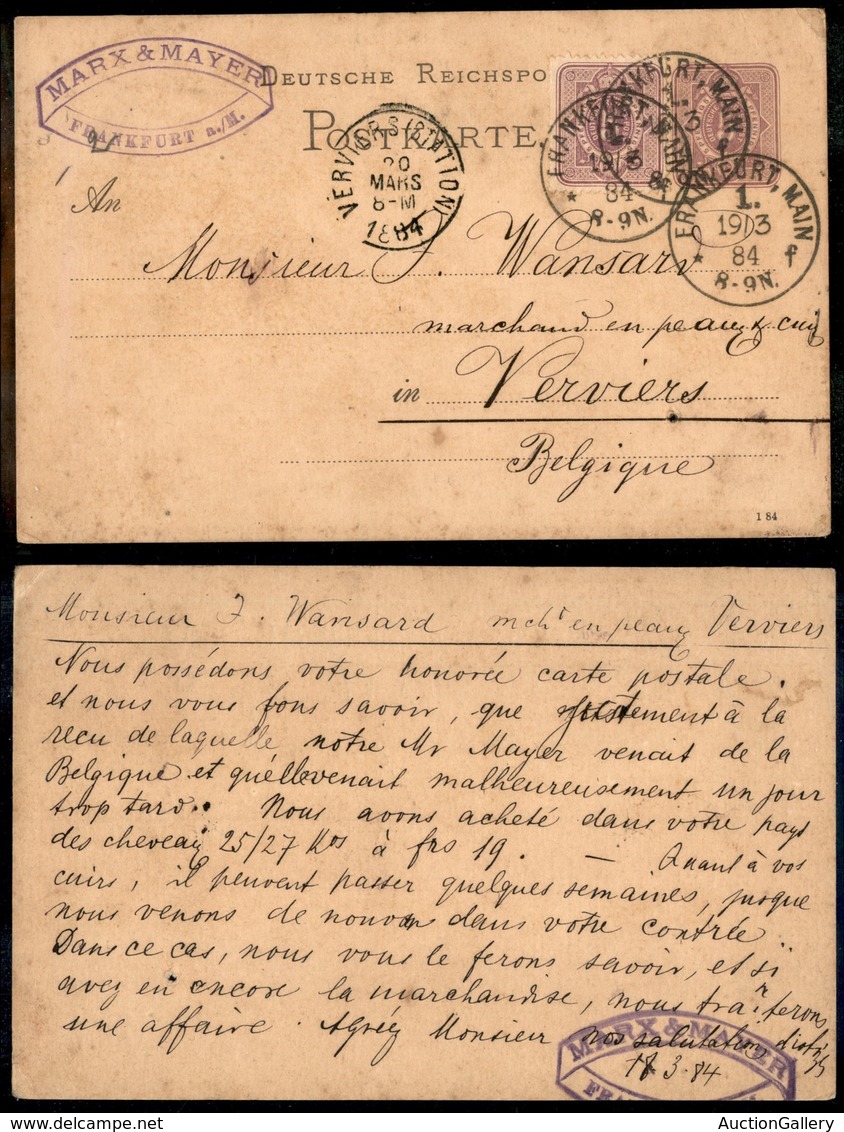 MARX & MAYER
FRANKFURT a./M.
DEUTSCHE REICHSPO
POSTKARTE
VERVIERS (STATION)
20
MARS
8-M
1884
FRANKFURT, MAIN
1.
19/3
84
8-9N.
* f
FRANKFURT, MAIN
1.
19/3
84 f
8-9N.
An
Monsieur J. Wansard
marchand en peaux & cuirs
in Verviers
Belgique
1 84
Monsieur J. Wansard mcht en peaux Verviers
Nous possédons votre honorée carte postale.
et nous vous fons savoir, que justement à la
recu de laquelle notre Mr Mayer venait de la
Belgique et qu'ellevenait malheureusement un jour
trop tard. Nous avons acheté dans votre pays
des cheveaux 25/27 Kos à frs 19. — Quant à vos
cuirs, il peuvent passer quelques semaines, jusque
nous venons de nouveau dans votre contrée
Dans ce cas, nous vous le ferons savoir, et si
avez en encore la marchandise, nous traiterons
une affaire. Agréez Monsieur nos salutations
18 3. 84
MARX & MAYER
AuctionGallery